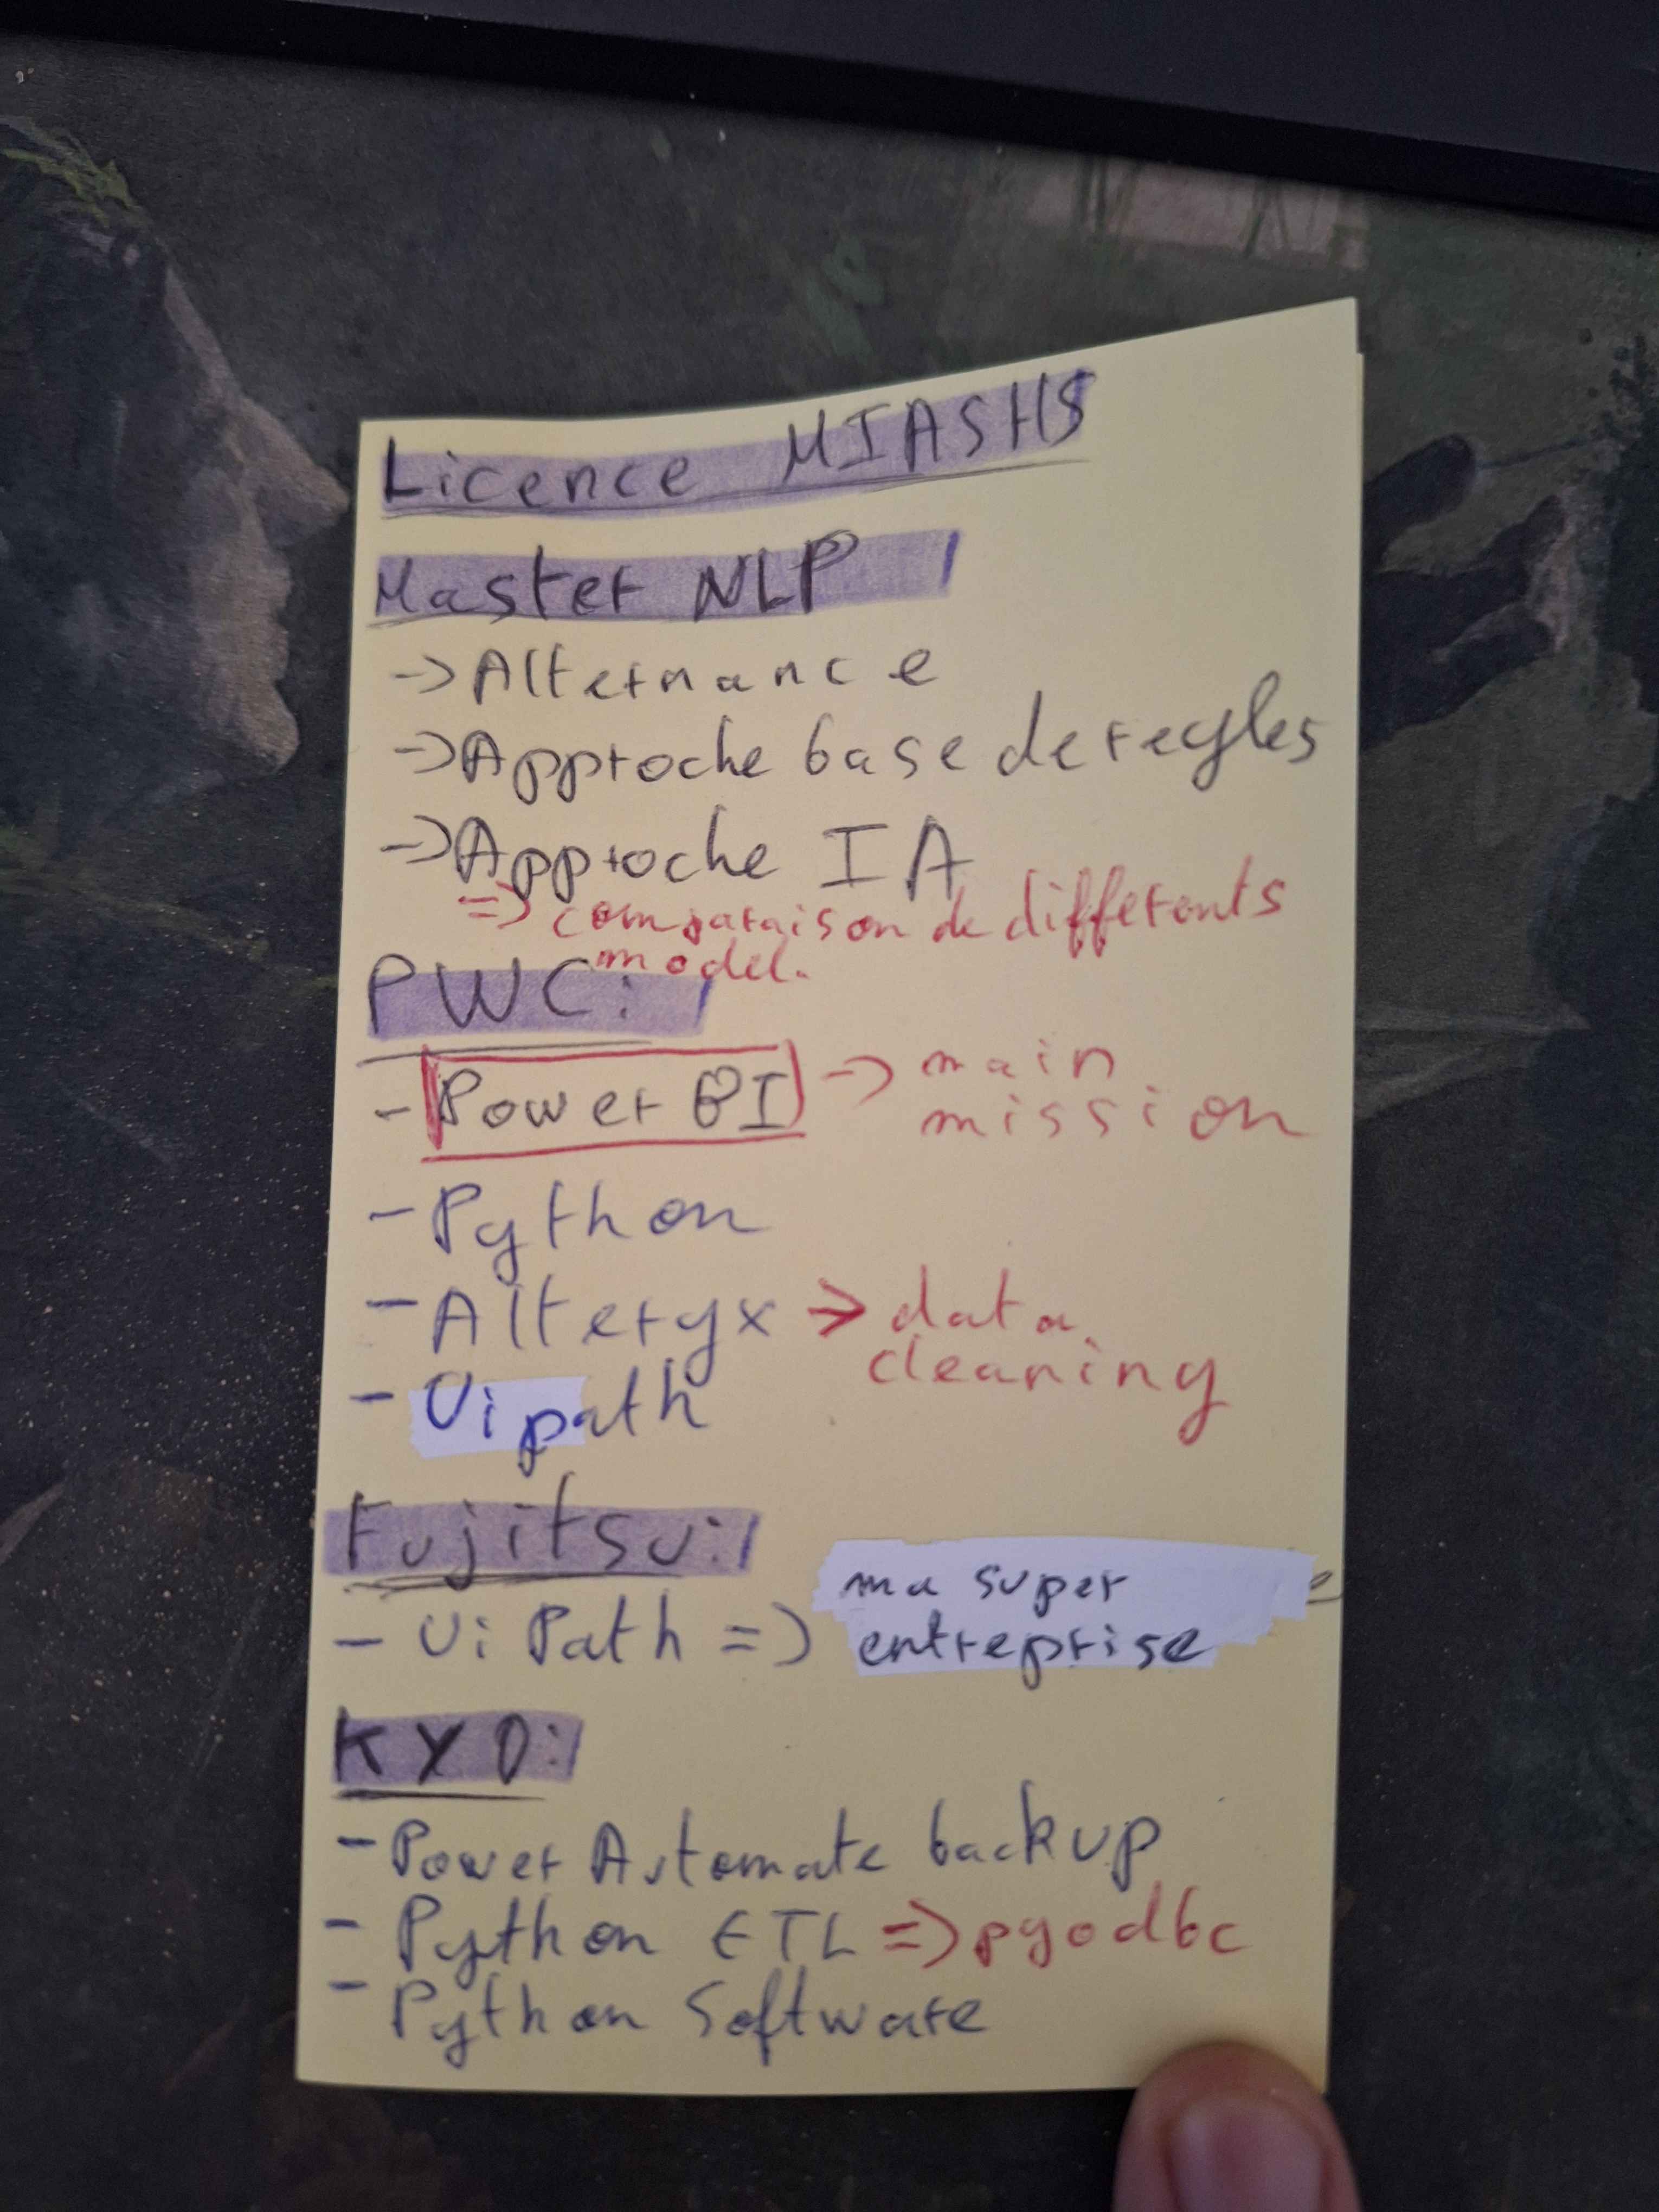 Licence MIASHS
Master NLP
-> Alternance
-> Approche base de regles
-> Approche IA
=> comparaison de differents
model.
PWC:
- Power BI -> main
mission
- Python
- Alteryx => data
cleaning
- Uipath
Fujitsu:
- UiPath => ma super
entreprise
KYO:
- Power Automate backup
- Python ETL => pyodbc
- Python Software